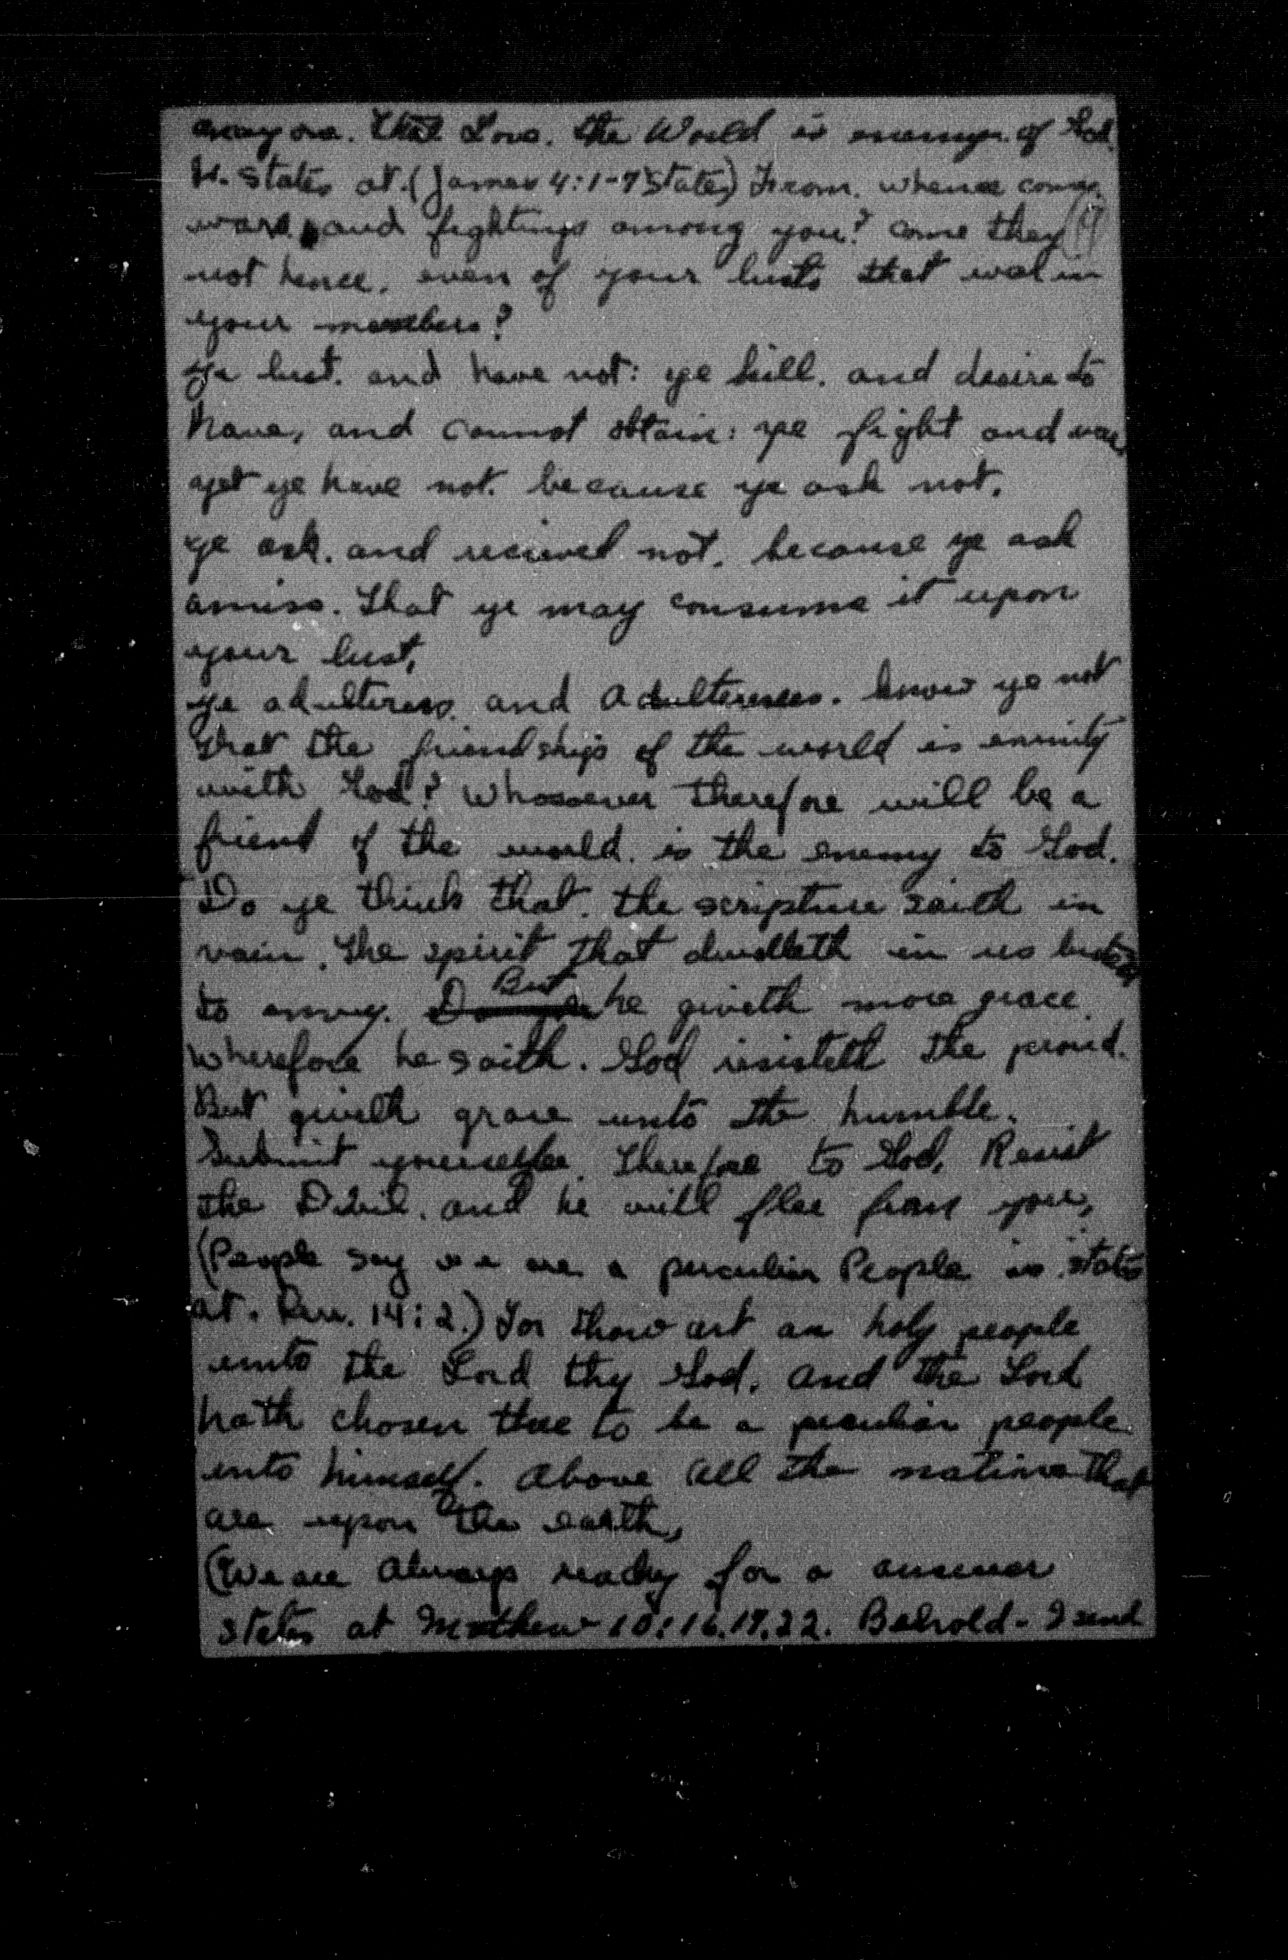 any one. that Love. the World is enemys. of God.
It. states at. (James 4:1-7 states) From. whence comes.
wars, and fightings among you? come they
not hence. even of your lusts that war in
your members?
ye lust. and have not: ye kill. and desire to
have, and cannot obtain: ye fight and war,
yet ye have not. because ye ask not.
ye ask. and recieved not. because ye ask
amiss. that ye may consume it upon
your lust,
ye adulteress. and adulteresses. know ye not
that the friendships of the world is enmity
with God? Whosoever therefore will be a
friend of the world. is the enemy to God.
Do ye think that. the scripture saith in
vain. the spirit that dwelleth in us lusteth
to envy. But he giveth more grace.
wherefore he saith. God resisteth the proud.
But giveth grace unto the humble.
Submit yourselfes. therefore to God. Resist
the Devil. and he will flee from you,
(People say we are a peculiar People is states
at. Deu. 14:2.) For thow art an holy people
unto the Lord thy God. and the Lord
hath chosen thee to be a peculiar people
unto himself. above all the nations that
are upon the earth,
(We are always ready for a answer
states at Mathew 10:16.17.22. Behold- I send